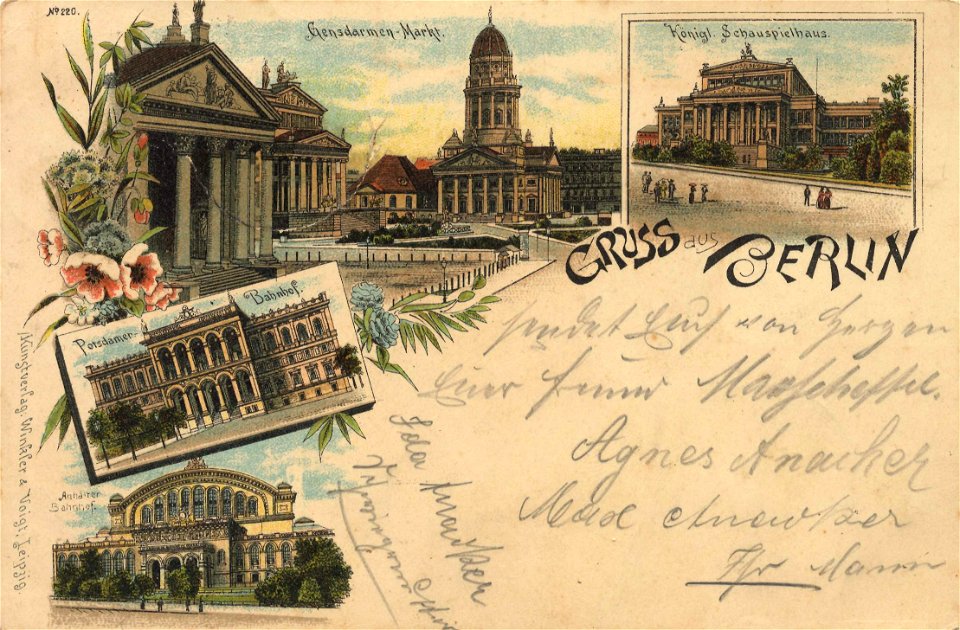 No 220.
Gensdarmen-Markt.
Königl. Schauspielhaus.
GRUSS aus BERLIN
Potsdamer Bahnhof
Anhalter
Bahnhof.
Kunstverlag: Winkler & Voigt, Leipzig.
sendet Euch von Herzen
Euer
Agnes Anacker
Max Anacker
Ihr Mann
Ida Anacker